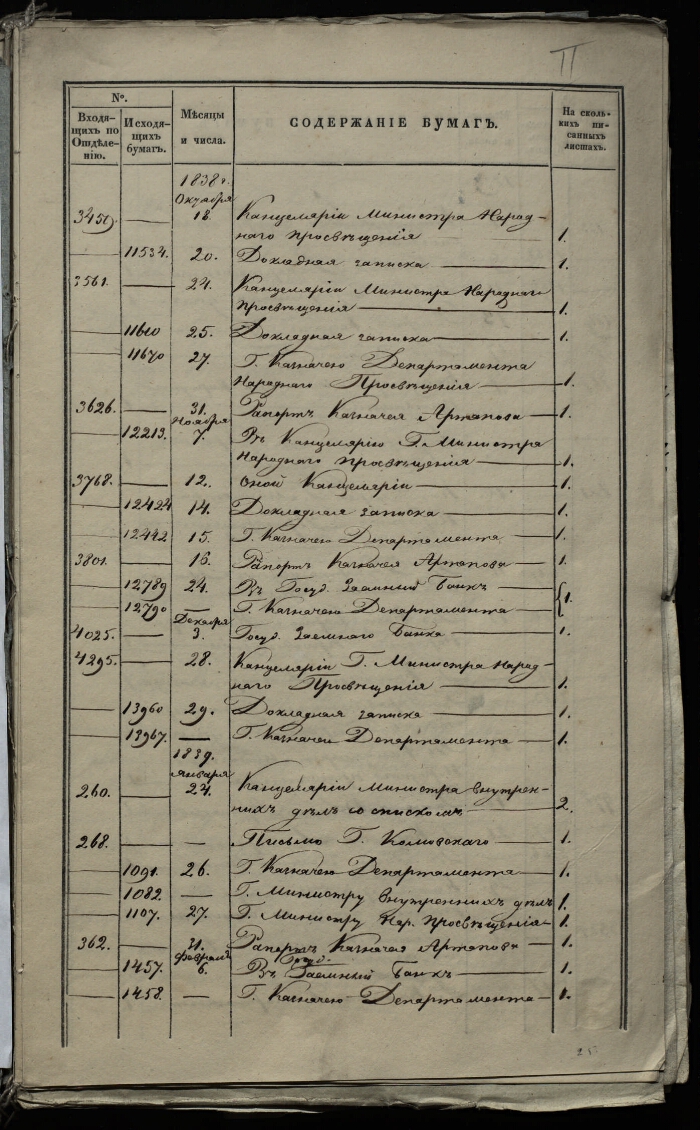 П
№.
Входящихъ по Отдѣленію.
Исходящихъ бумагъ.
Мѣсяцы и числа.
СОДЕРЖАНІЕ БУМАГЪ.
На сколькихъ писанныхъ листахъ.
1838 г.
Октября
3459. — 18. Канцеляріи Министра Народ-
наго Просвѣщенія — 1.
— 11534. 20. Докладная записка — 1.
3561. — 24. Канцеляріи Министра Народнаго
Просвѣщенія — 1.
— 11610 25. Докладная записка — 1.
— 11670 27. Г. Казначею Департамента
Народнаго Просвѣщенія — 1.
3626. — 31. Рапортъ Казначея Артапова — 1.
Ноября
— 12213. 7. Въ Канцелярію Г. Министра
Народнаго Просвѣщенія — 1.
3768. — 12. Оной Канцеляріи — 1.
— 12424 14. Докладная записка — 1.
— 12442 15. Г. Казначею Департамента — 1.
3801. — 16. Рапортъ Казначея Артапова — 1.
— 12789 24. Въ Госуд. Заемный Банкъ — { 1.
— 12790 — Г. Казначею Департамента —
Декабря
4025. — 3. Госуд. Заемнаго Банка — 1.
4295. — 28. Канцеляріи Г. Министра Народ-
наго Просвѣщенія — 1.
— 13960 29. Докладная записка — 1.
— 13967. — Г. Казначею Департамента — 1.
1839.
Января
260. — 24. Канцеляріи Министра внутрен-
нихъ дѣлъ со спискомъ — 2.
268. — — Письмо Г. Комовскаго — 1.
— 1091. 26. Г. Казначею Департамента — 1.
— 1082. — Г. Министру внутреннихъ дѣлъ 1.
— 1107. 27. Г. Министру Нар. Просвѣщенія — 1.
362. — 31. Рапортъ Казначея Артапова — 1.
Февраля Госуд.
— 1457. 6. Въ Заемный Банкъ — 1.
— 1458. — Г. Казначею Департамента — 1.